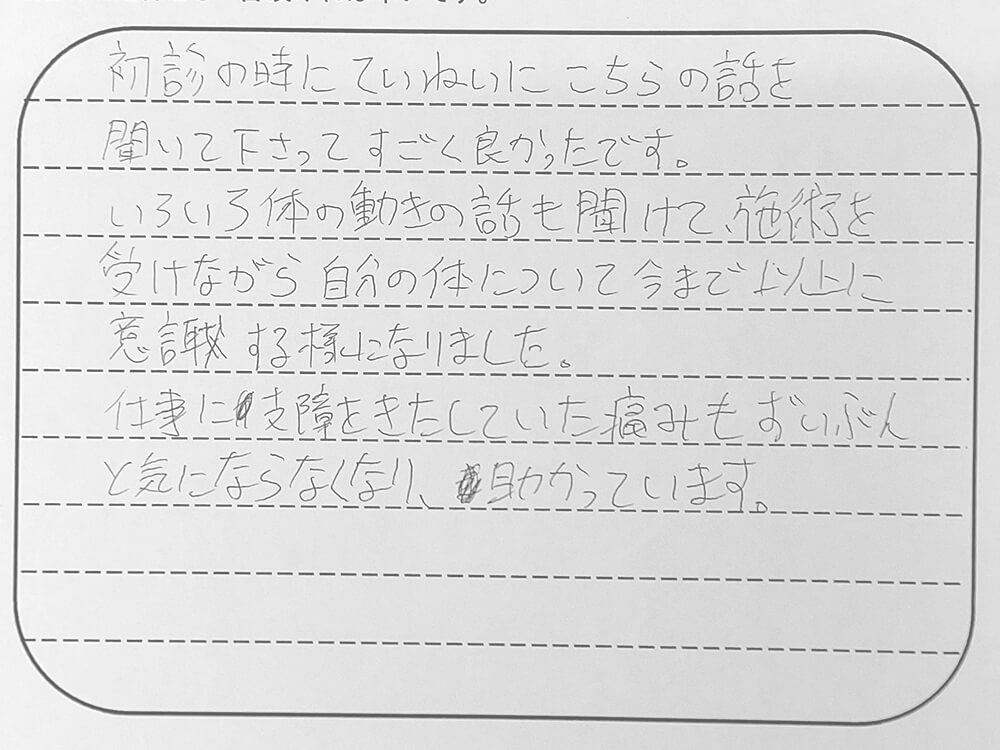 初診の時にていねいにこちらの話を
聞いて下さってすごく良かったです。
いろいろ体の動きの話も聞けて、施術を
受けながら自分の体について今まで以上に
意識する様になりました。
仕事に支障をきたしていた痛みもずいぶん
と気にならなくなり、助かっています。